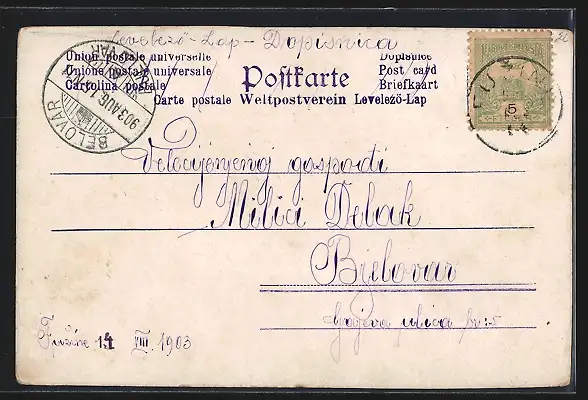 Levelező-Lap - Dopisnica
Union postale universelle Dopisnice
Unione postale universale Postkarte Post card
Cartolina postale Briefkaart
Carte postale Weltpostverein Levelező-Lap
BELOVAR
903 AUG. 1
BJELOVAR
5
Velecijenjenoj gospodi
Milici Delak
Bjelovar
Gajeva ulica br: 5
Fužine 14 VIII. 1903